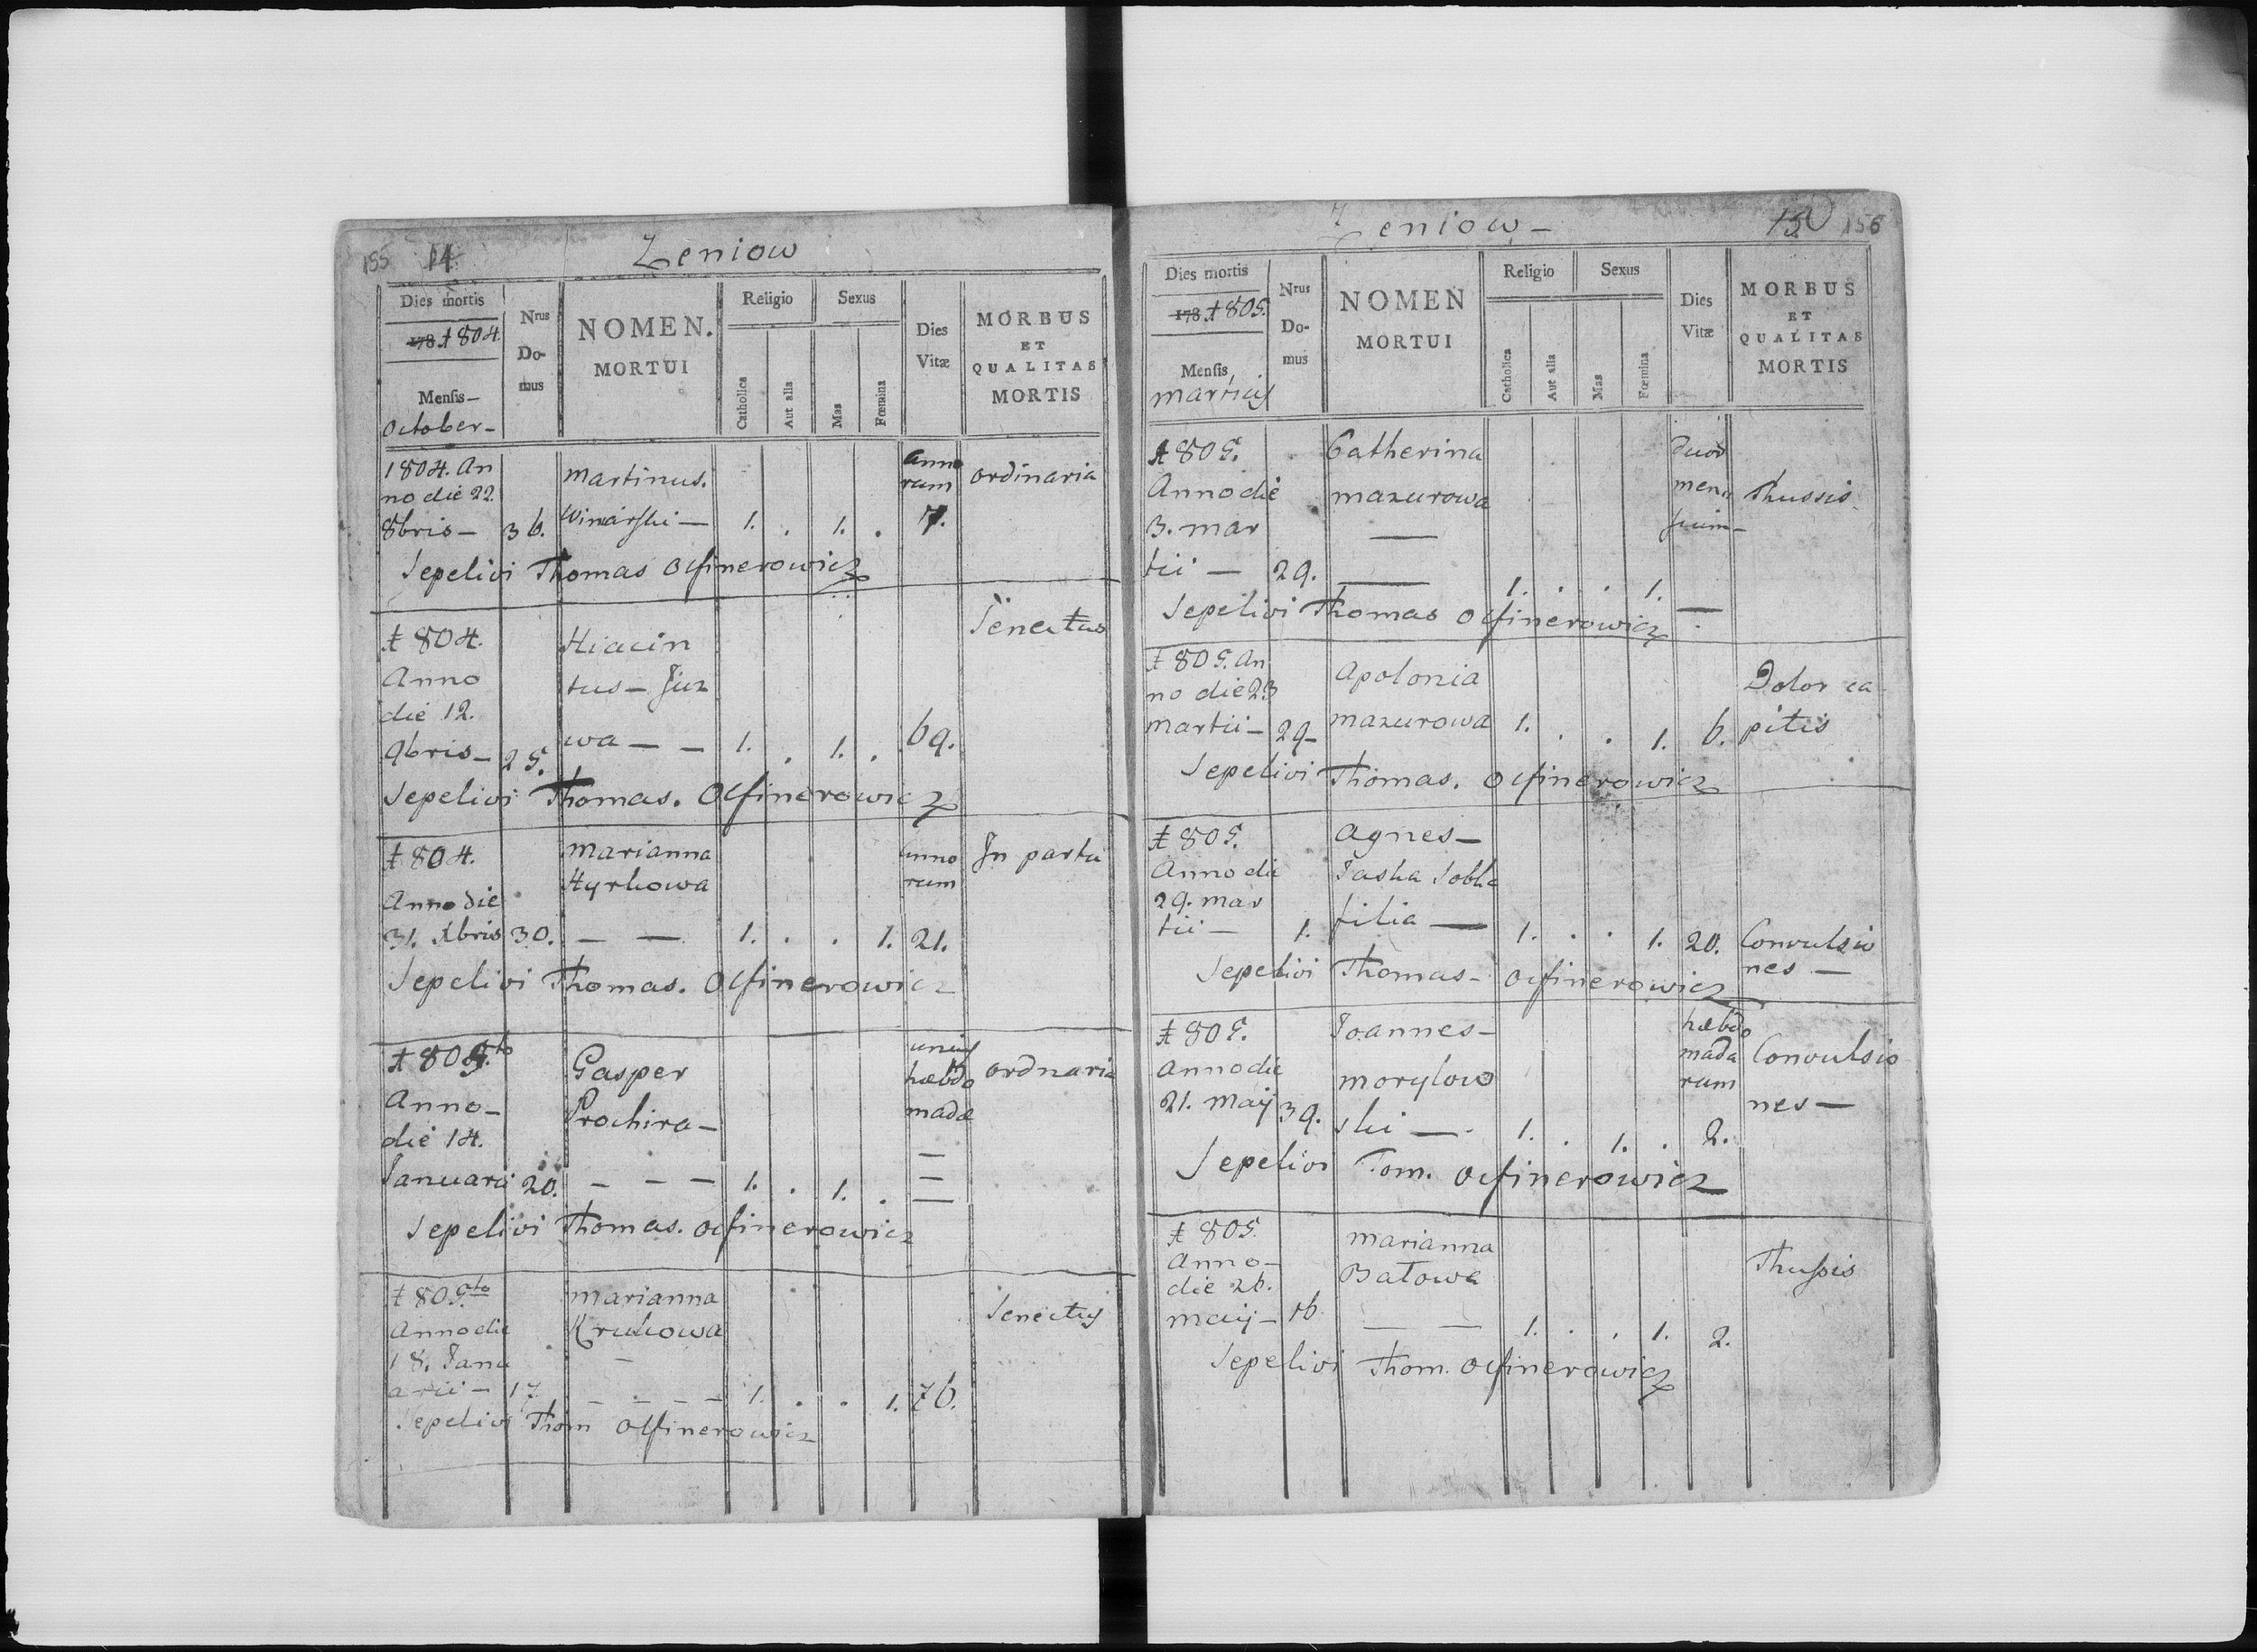 155 14 Zeniow
Dies mortis
178 1804.
Mensis –
october –
Nrus Do- mus
NOMEN. MORTUI
Religio
Catholica
Aut alia
Sexus
Mas
Fœmina
Dies Vitæ
MORBUS ET QUALITAS MORTIS
1804. An martinus. anno ordinaria
no die 22. rum
8bris – 36. Winarski – 1. . 1. . 7.
Sepelivi Thomas Olfinerowicz
1804. Hiacin Senectus
Anno tus –
die 12.
9bris – 25. wa – – 1. . 1. . 69.
Sepelivi Thomas. Olfinerowicz
1804. Marianna anno In partu
Anno die Hyrkowa rum
31. Xbris 30. – – 1. . . 1. 21.
Sepelivi Thomas. Olfinerowicz
1805to Gasper unius ordnaria
Anno – Prochira – hæbdo
die 14. madæ
Januarii 20. – – – 1. . 1. . –
Sepelivi Thomas. Olfinerowicz
1805to marianna Senectus
Anno die Krukowa
18. Janu –
arii – 17 – – – – 1. . . 1. 76.
Sepelivi Thom Olfinerowicz
Zeniow – 156
Dies mortis
178 1805.
Mensis
martius
Nrus Do- mus
NOMEN MORTUI
Religio
Catholica
Aut alia
Sexus
Mas
Fœmina
Dies Vitæ
MORBUS ET QUALITAS MORTIS
1805. Catherina duor
Anno die mazurowa men Thussis
3. mar – suum –
tii – 29. – 1. . . 1.
Sepelivi Thomas Olfinerowicz –
1805. An Apolonia Dolor ca
no die 23
martii – 29 – mazurowa 1. . . 1. 6. pitis
Sepelivi Thomas. Olfinerowicz
1805. Agnes –
Anno die
29. mar
tii – 1. filia – 1. . . 1. 20. Convulsio
nes –
Sepelivi Thomas – Olfinerowicz
1805. Joannes – hæbdo
Anno die morylow mada Convulsio
21. Maij 39. ski – 1. . 1. . rum 2. nes –
Sepelivi Tom. Olfinerowicz
1805. marianna Thussis
Anno – Batowa
die 26.
maij – 16 – – 1. . . 1. 2.
Sepelivi Thom. Olfinerowicz